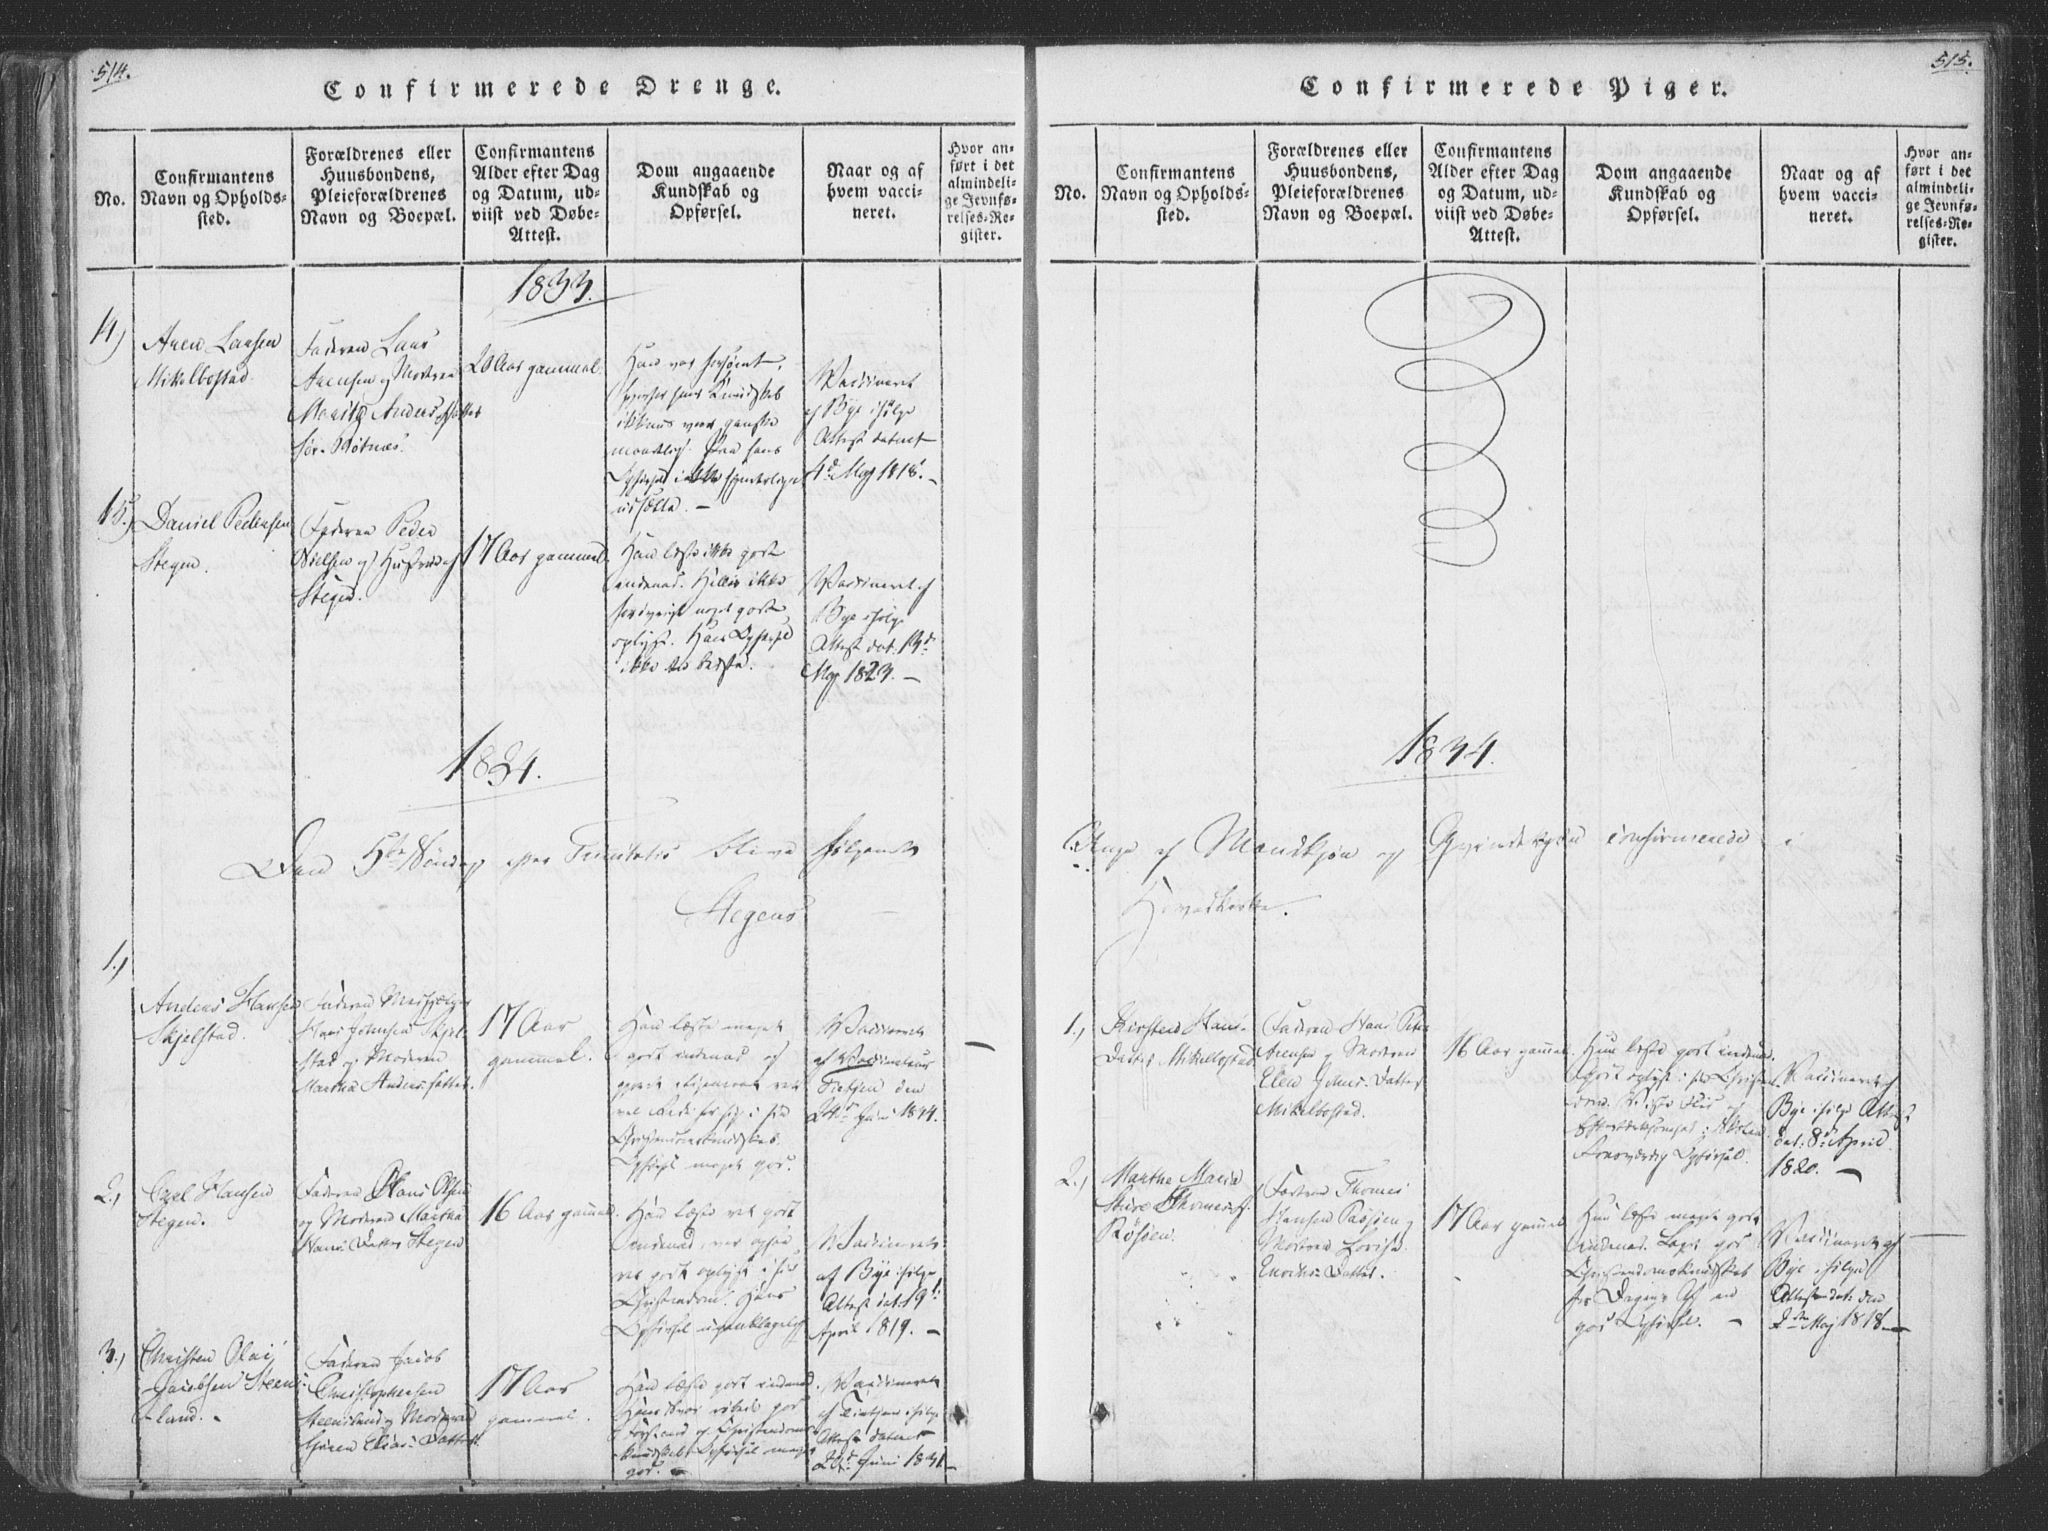 514.
Confirmerede Drenge.
No.
Confirmantens
Navn og Opholds-
sted.
Forældrenes eller
Huusbondens,
Pleieforældrenes
Navn og Boepæl.
Confirmantens
Alder efter Dag
og Datum, ud-
viist ved Døbe-
Attest.
Dom angaaende
Kundskab og
Opførsel.
Naar og af
hvem vacci-
neret.
Hvor an-
ført i det
almindeli-
ge Jevnfø-
relses-Re-
gister.
1833.
14)
Aren Larsen
Mikelbostad.
Faderen Lars
Arensen og Moderen
Anders Datter
20 Aar gammel.
Han var forsømt,
Vaccineret
af Bye ifølge
Attest datert
4d May 1818.
15)
Daniel Pedersen
Stegen.
Faderen Peder
Nielsen og Hustrue
Stegen.
17 Aar gammel.
Han læste ikke godt
indenad.
ikke
oplyst. Hans Opførsel
ikke den bedste.
Vaccineret af
Bye ifølge
Attest dat. 13d
May 1823.
1834.
Den 5te Søndag efter Trinitatis bleve følgende
Stegens
1.)
Anders Hansen
Skjelstad.
Faderen
Hans Johnsen Skjel-
stad og Moderen
Martha Anders Datter
17 Aar
gammel.
Han læste meget
godt indenad og
Opførsel meget god.
Vaccineret
af Vaccinateur
den
24de Juni 1834.
2.)
Carl Hansen
Stegen.
Faderen Hans Olsen
og Moderen Martha
Hans Datter Stegen
16 Aar gammel.
Han læste ret godt
indenad, var ogsaa
ret godt oplyst i sin
Christendom. Hans
Opførsel upaaklagelig
Vaccineret
af Bye ifølge
Attest dat. 19d
April 1819.
3.)
Christen Olai
Jacobsen Steens-
land.
Faderen Jacob
Christophersen
Steensland og Moderen
Elias Datter
17 Aar
gammel.
Han læste godt indenad.
god
Forstand og Christendoms
Kundskab. Opførsel meget
god.
Vaccineret
af ifølge
Attest datert
Juni 1831.
515.
Confirmerede Piger.
No.
Confirmantens
Navn og Opholds-
sted.
Forældrenes eller
Huusbondens,
Pleieforældrenes
Navn og Boepæl.
Confirmantens
Alder efter Dag
og Datum, ud-
viist ved Døbe-
Attest.
Dom angaaende
Kundskab og
Opførsel.
Naar og af
hvem vacci-
neret.
Hvor an-
ført i det
almindeli-
ge Jevnfø-
relses-Re-
gister.
1834.
Unge af Mandkjøn og Qvindekjøn confirmerede i
Hovedkirke.
1.)
Kirsten Hans-
Datter Mikelbostad
Faderen Hans Peter
Arensen og Moderen
Elen Johns Datter
Mikelbostad.
16 Aar gammel.
Hun læste godt indenad.
godt oplyst i sin Christen-
dom. Viste Flid og
Opmærksomhed i Skolen
Opførsel.
Vaccineret af
Bye ifølge Attest
dat: 8d April
1820.
2.)
Marthe Maria
Sture Thomesd.
Røsøen.
Faderen Thomes
Hansen Røsøen og
Moderen Lovise
Enochs Datter.
17 Aar gammel
Hun læste meget godt
indenad. god
Christendomskundskab
for Dagen. Af en
god Opførsel.
Vaccineret af
Bye ifølge
Attest dat: den
2den May 1818.